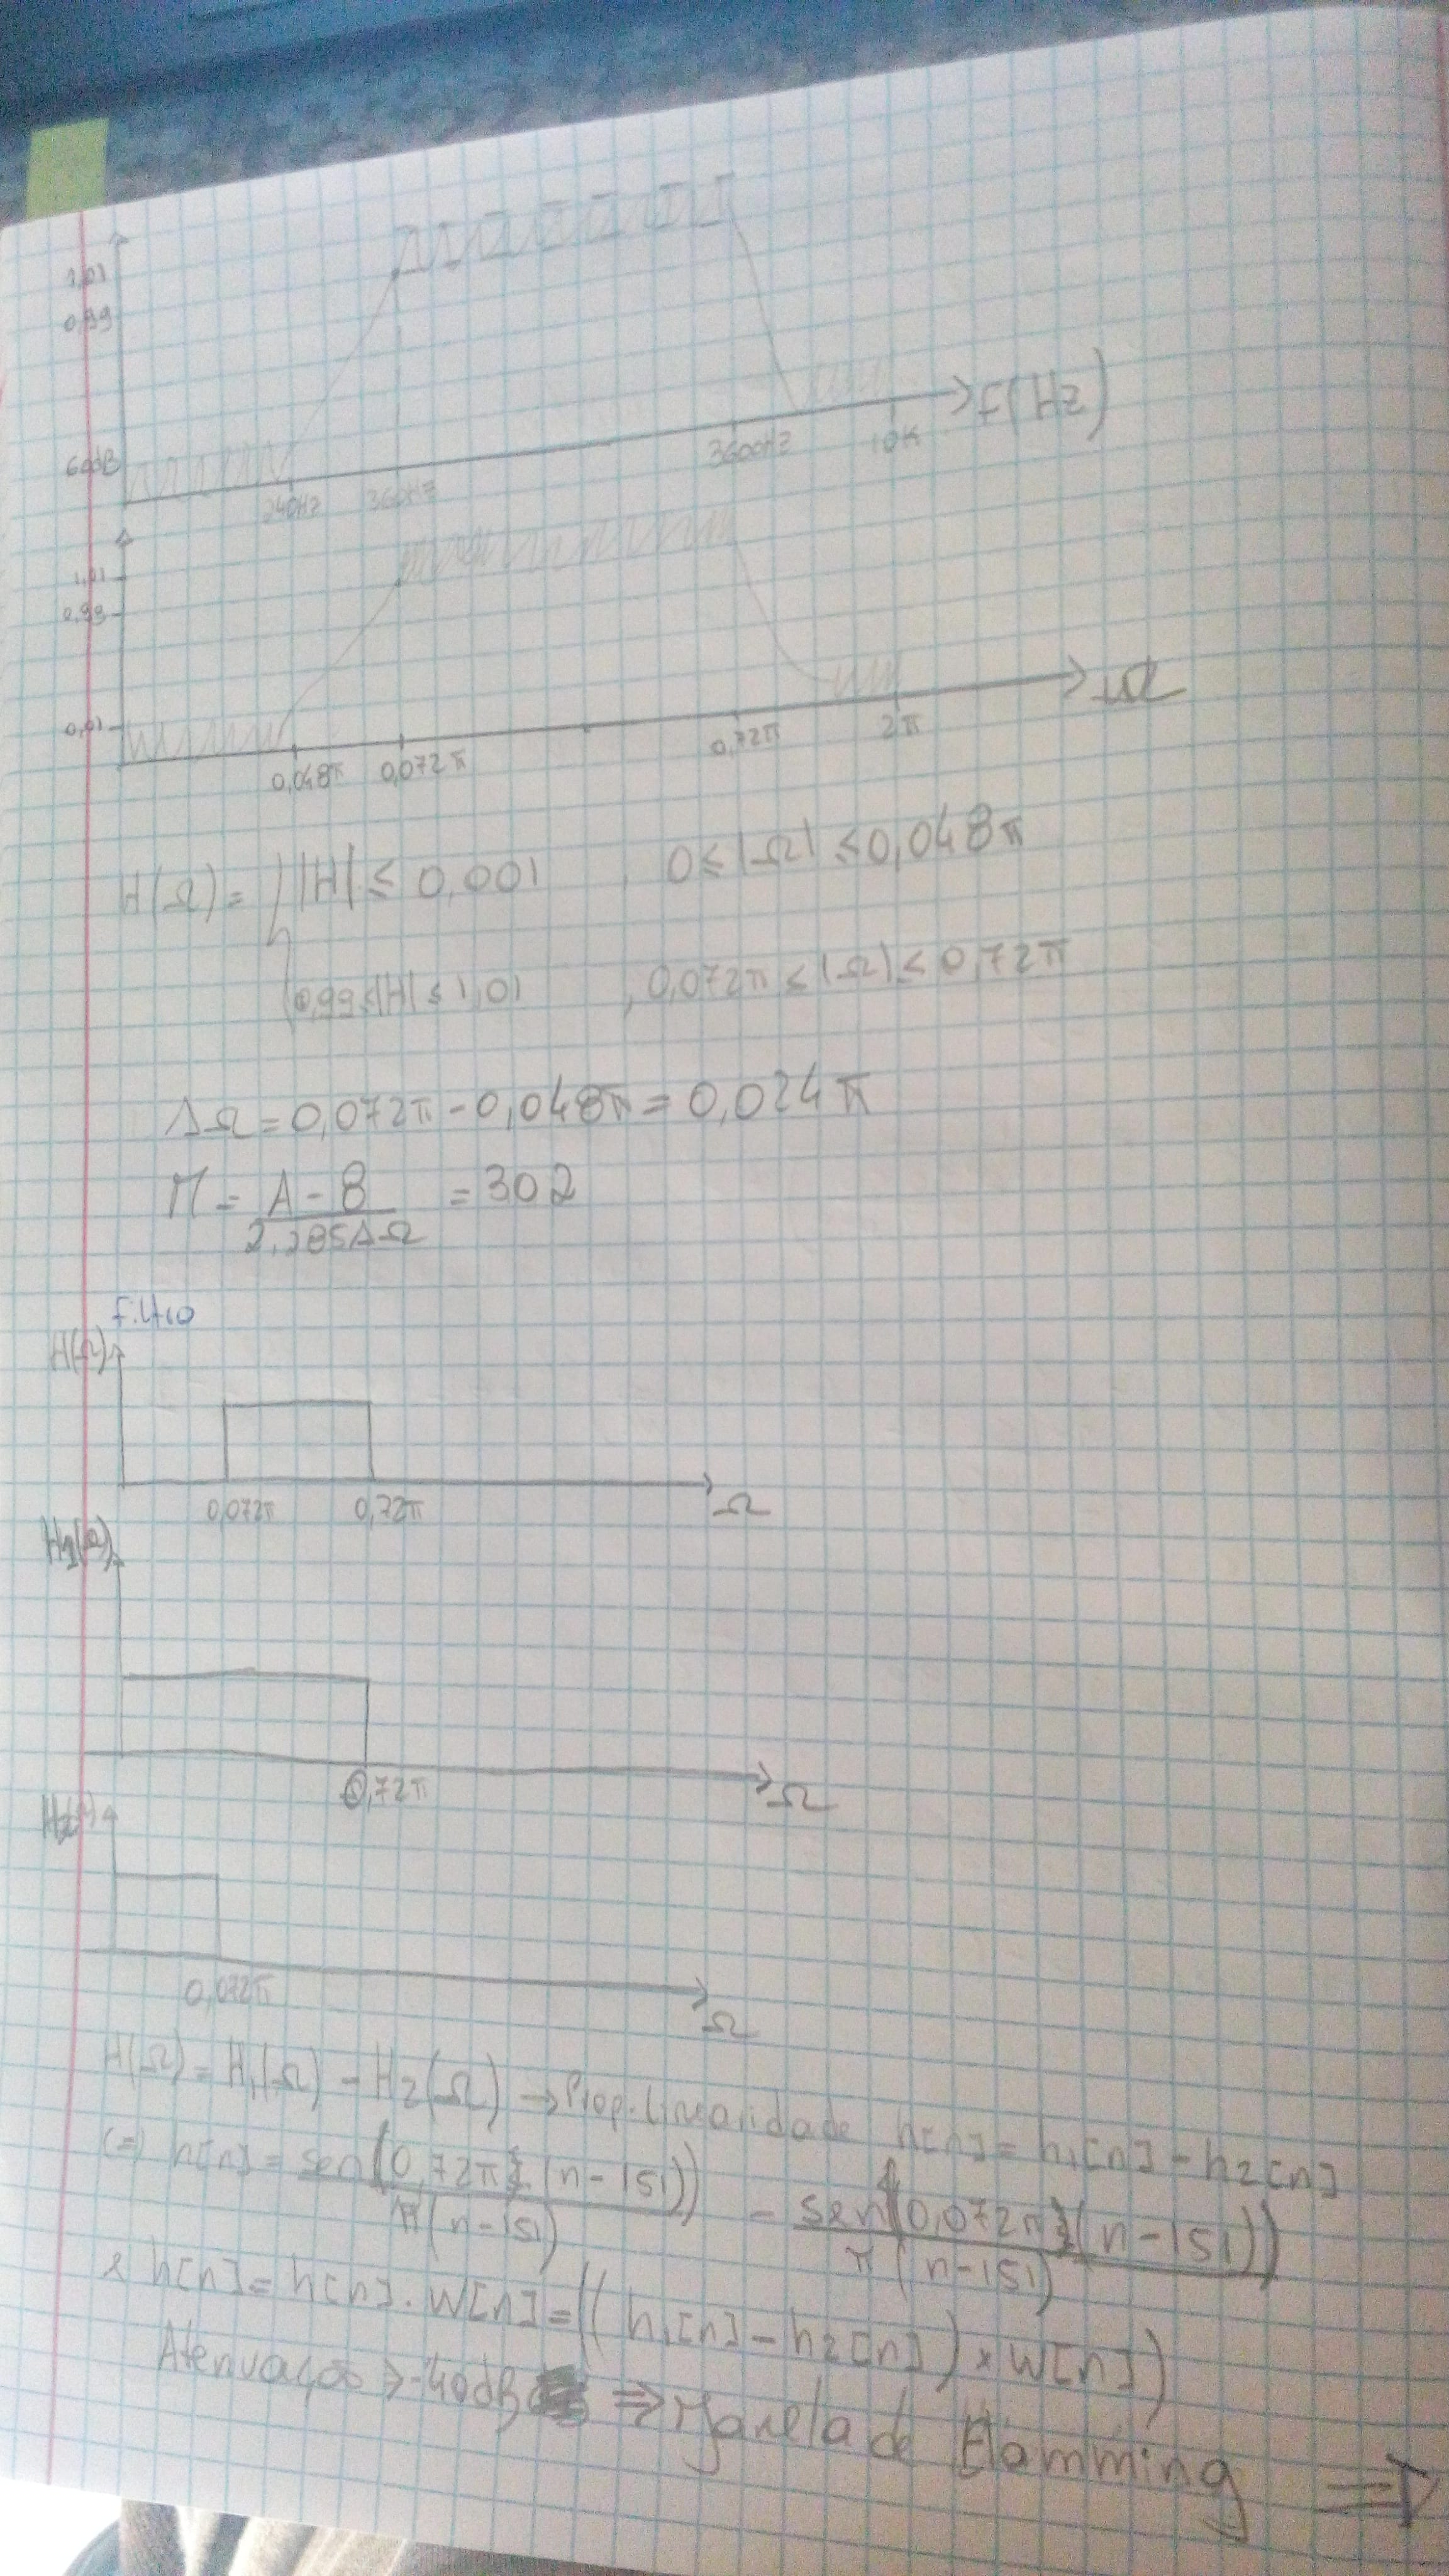 1,01
0,99
60dB
240Hz 360Hz 3600Hz 10K f(Hz)
1,01
0,99
0,01
0,048π 0,072π 0,72π 2π Ω
H(Ω)= { |H| ≤ 0,001 , 0≤|Ω| ≤0,048π
0,99≤|H| ≤ 1,01 , 0,072π ≤|Ω|≤ 0,72π
ΔΩ=0,072π-0,048π=0,024π
M = A-8 / 2,285ΔΩ = 302
Filtro
H(Ω)
0,072π 0,72π Ω
H1(Ω)
0,72π Ω
0,072π Ω
H(Ω)=H1(Ω)-H2(Ω) → Prop. Linearidade h[n]=h1[n]-h2[n]
(=) h[n]= sen(0,72π(n-151)) / π(n-151) - sen(0,072π(n-151)) / π(n-151)
h[n]=h[n].W[n]=((h1[n]-h2[n])×W[n])
Atenuação > -40dB ⇒ Janela de Hamming ⇒